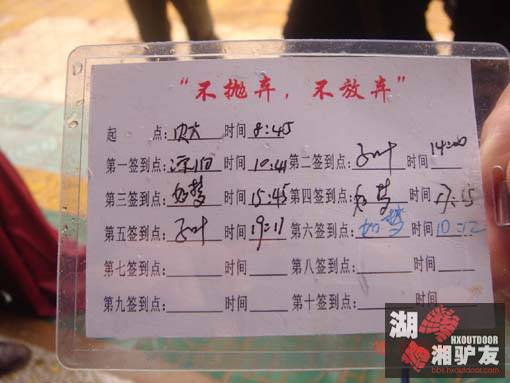 “不抛弃，不放弃”
起 点: 时间 8:45
第一签到点: 时间 10:41 第二签到点: 子叶 14:00
第三签到点: 如梦 时间 15:45 第四签到点: 如梦 时间 17:15
第五签到点: 子叶 时间 19:11 第六签到点: 如梦 时间 10:12
第七签到点: 时间 第八签到点: 时间
第九签到点: 时间 第十签到点: 时间
湖
HXOUTDOOR
湘驴友
bbs.hxoutdoor.com